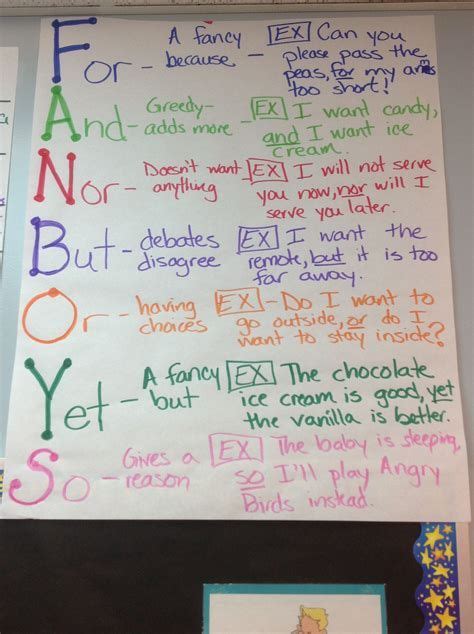 For - A fancy because - EX Can you please pass the peas, for my arms too short!
And - Greedy- adds more - EX I want candy, and I want ice cream.
Nor - Doesn't want anything - EX I will not serve you now, nor will I serve you later.
But - debates disagree EX I want the remote, but it is too far away.
Or - having choices EX - Do I want to go outside, or do I want to stay inside?
Yet - A fancy but EX The chocolate ice cream is good, yet the vanilla is better.
So - Gives a reason EX The baby is sleeping, so I'll play Angry Birds instead.